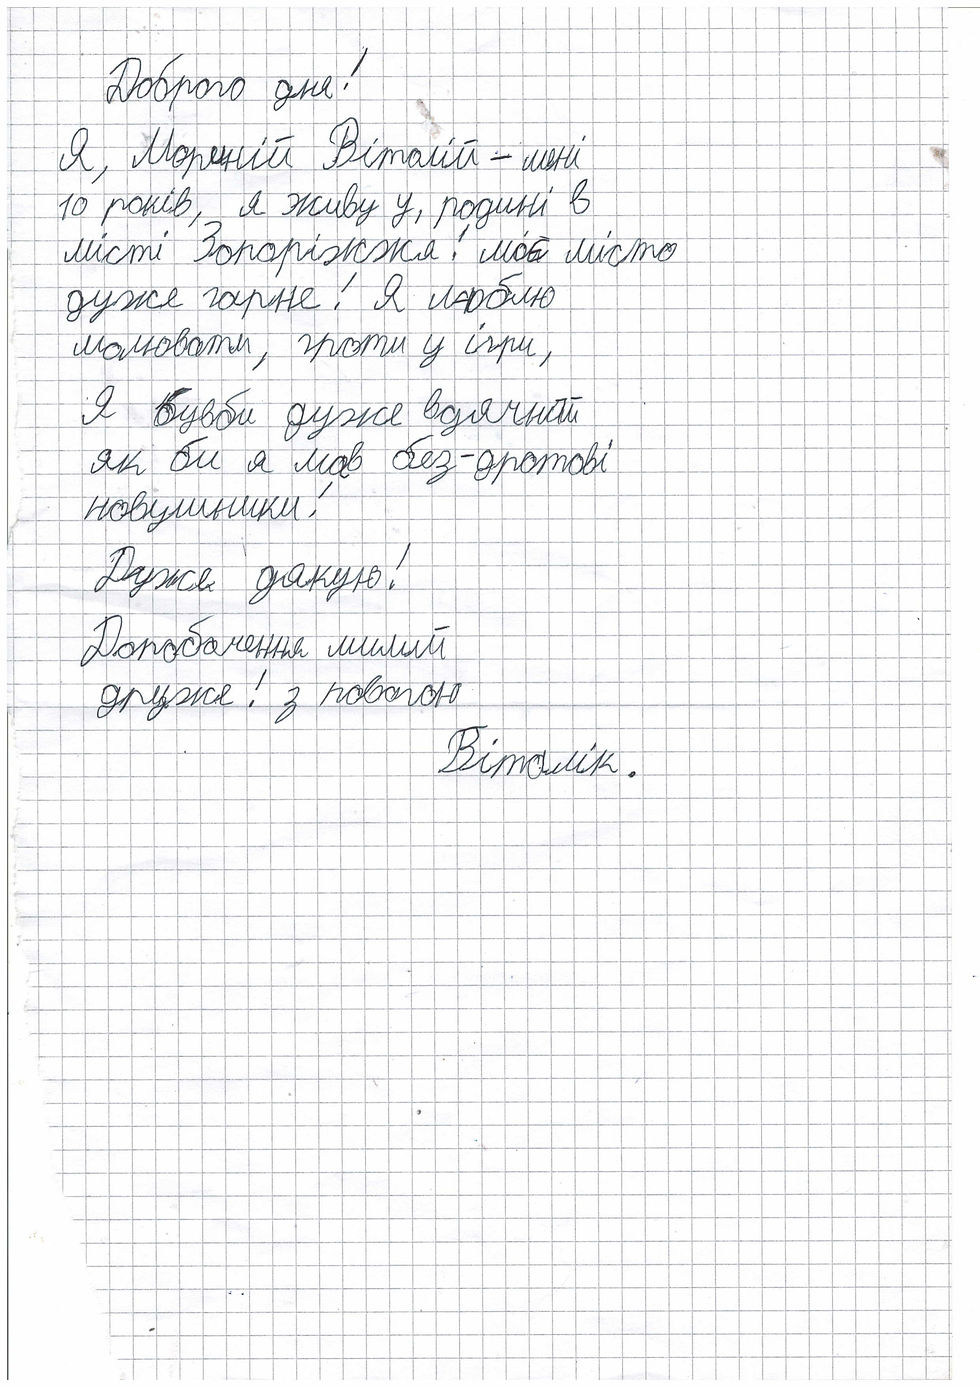 Доброго дня!
Я, Моряній Віталій – мені
10 років, я живу у, родині в
місті Запоріжжя! моє місто
дуже гарне! Я люблю
малювати, грати у ігри,
Я бувби дуже вдячний
як би я мав без-дротові
навушники!
Дуже дякую!
Допобачення милий
друже! з повагою
Віталік.